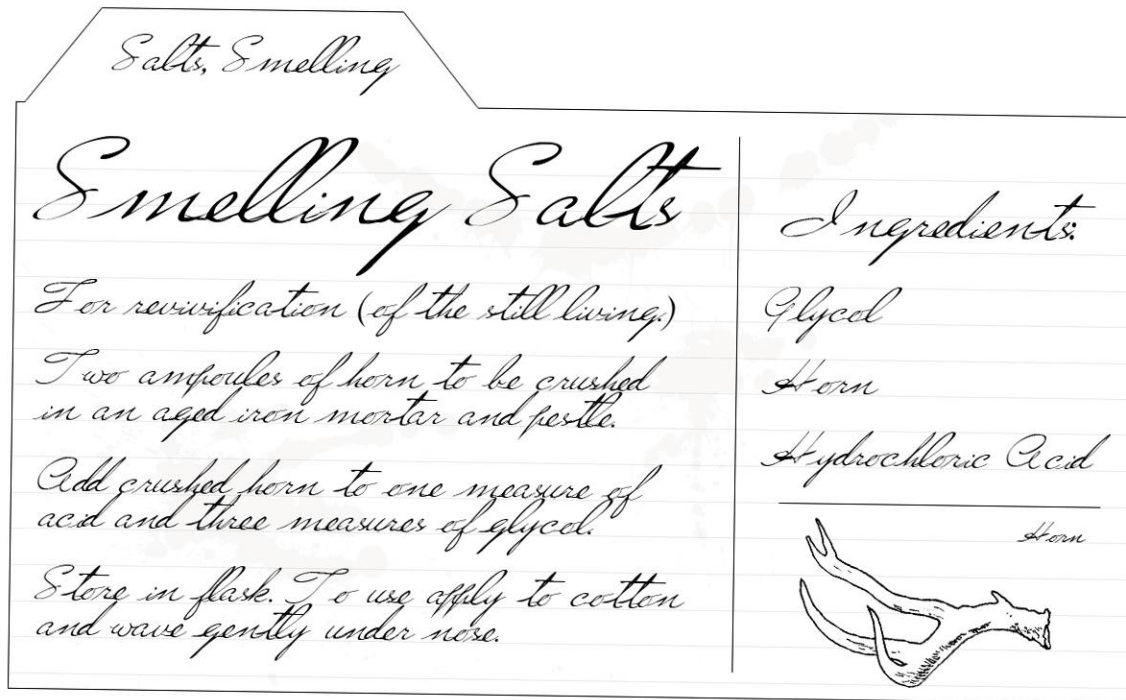 Salts, Smelling
Smelling Salts
For revivification (of the still living.)
Two ampoules of horn to be crushed
in an aged iron mortar and pestle.
Add crushed horn to one measure of
acid and three measures of glycol.
Store in flask. To use apply to cotton
and wave gently under nose.
Ingredients:
Glycol
Horn
Hydrochloric Acid
Horn